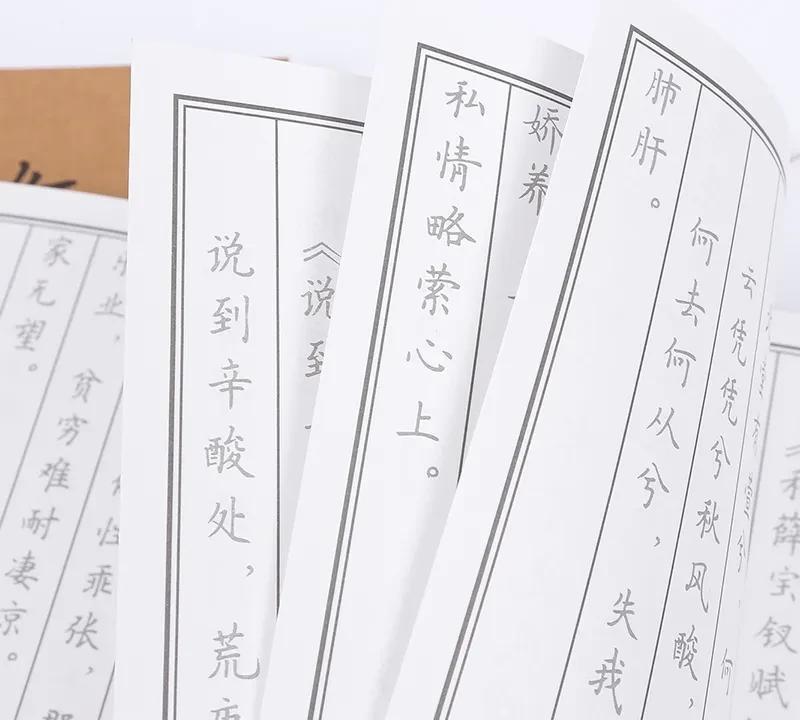 《和薛宝钗赋
云凭凭兮秋风酸，
何去何从兮，失我
肺肝。
娇养
私情略萦心上。
《说到
说到辛酸处，荒
性乖张，那
乐业，贫穷难耐凄凉。
家无望。